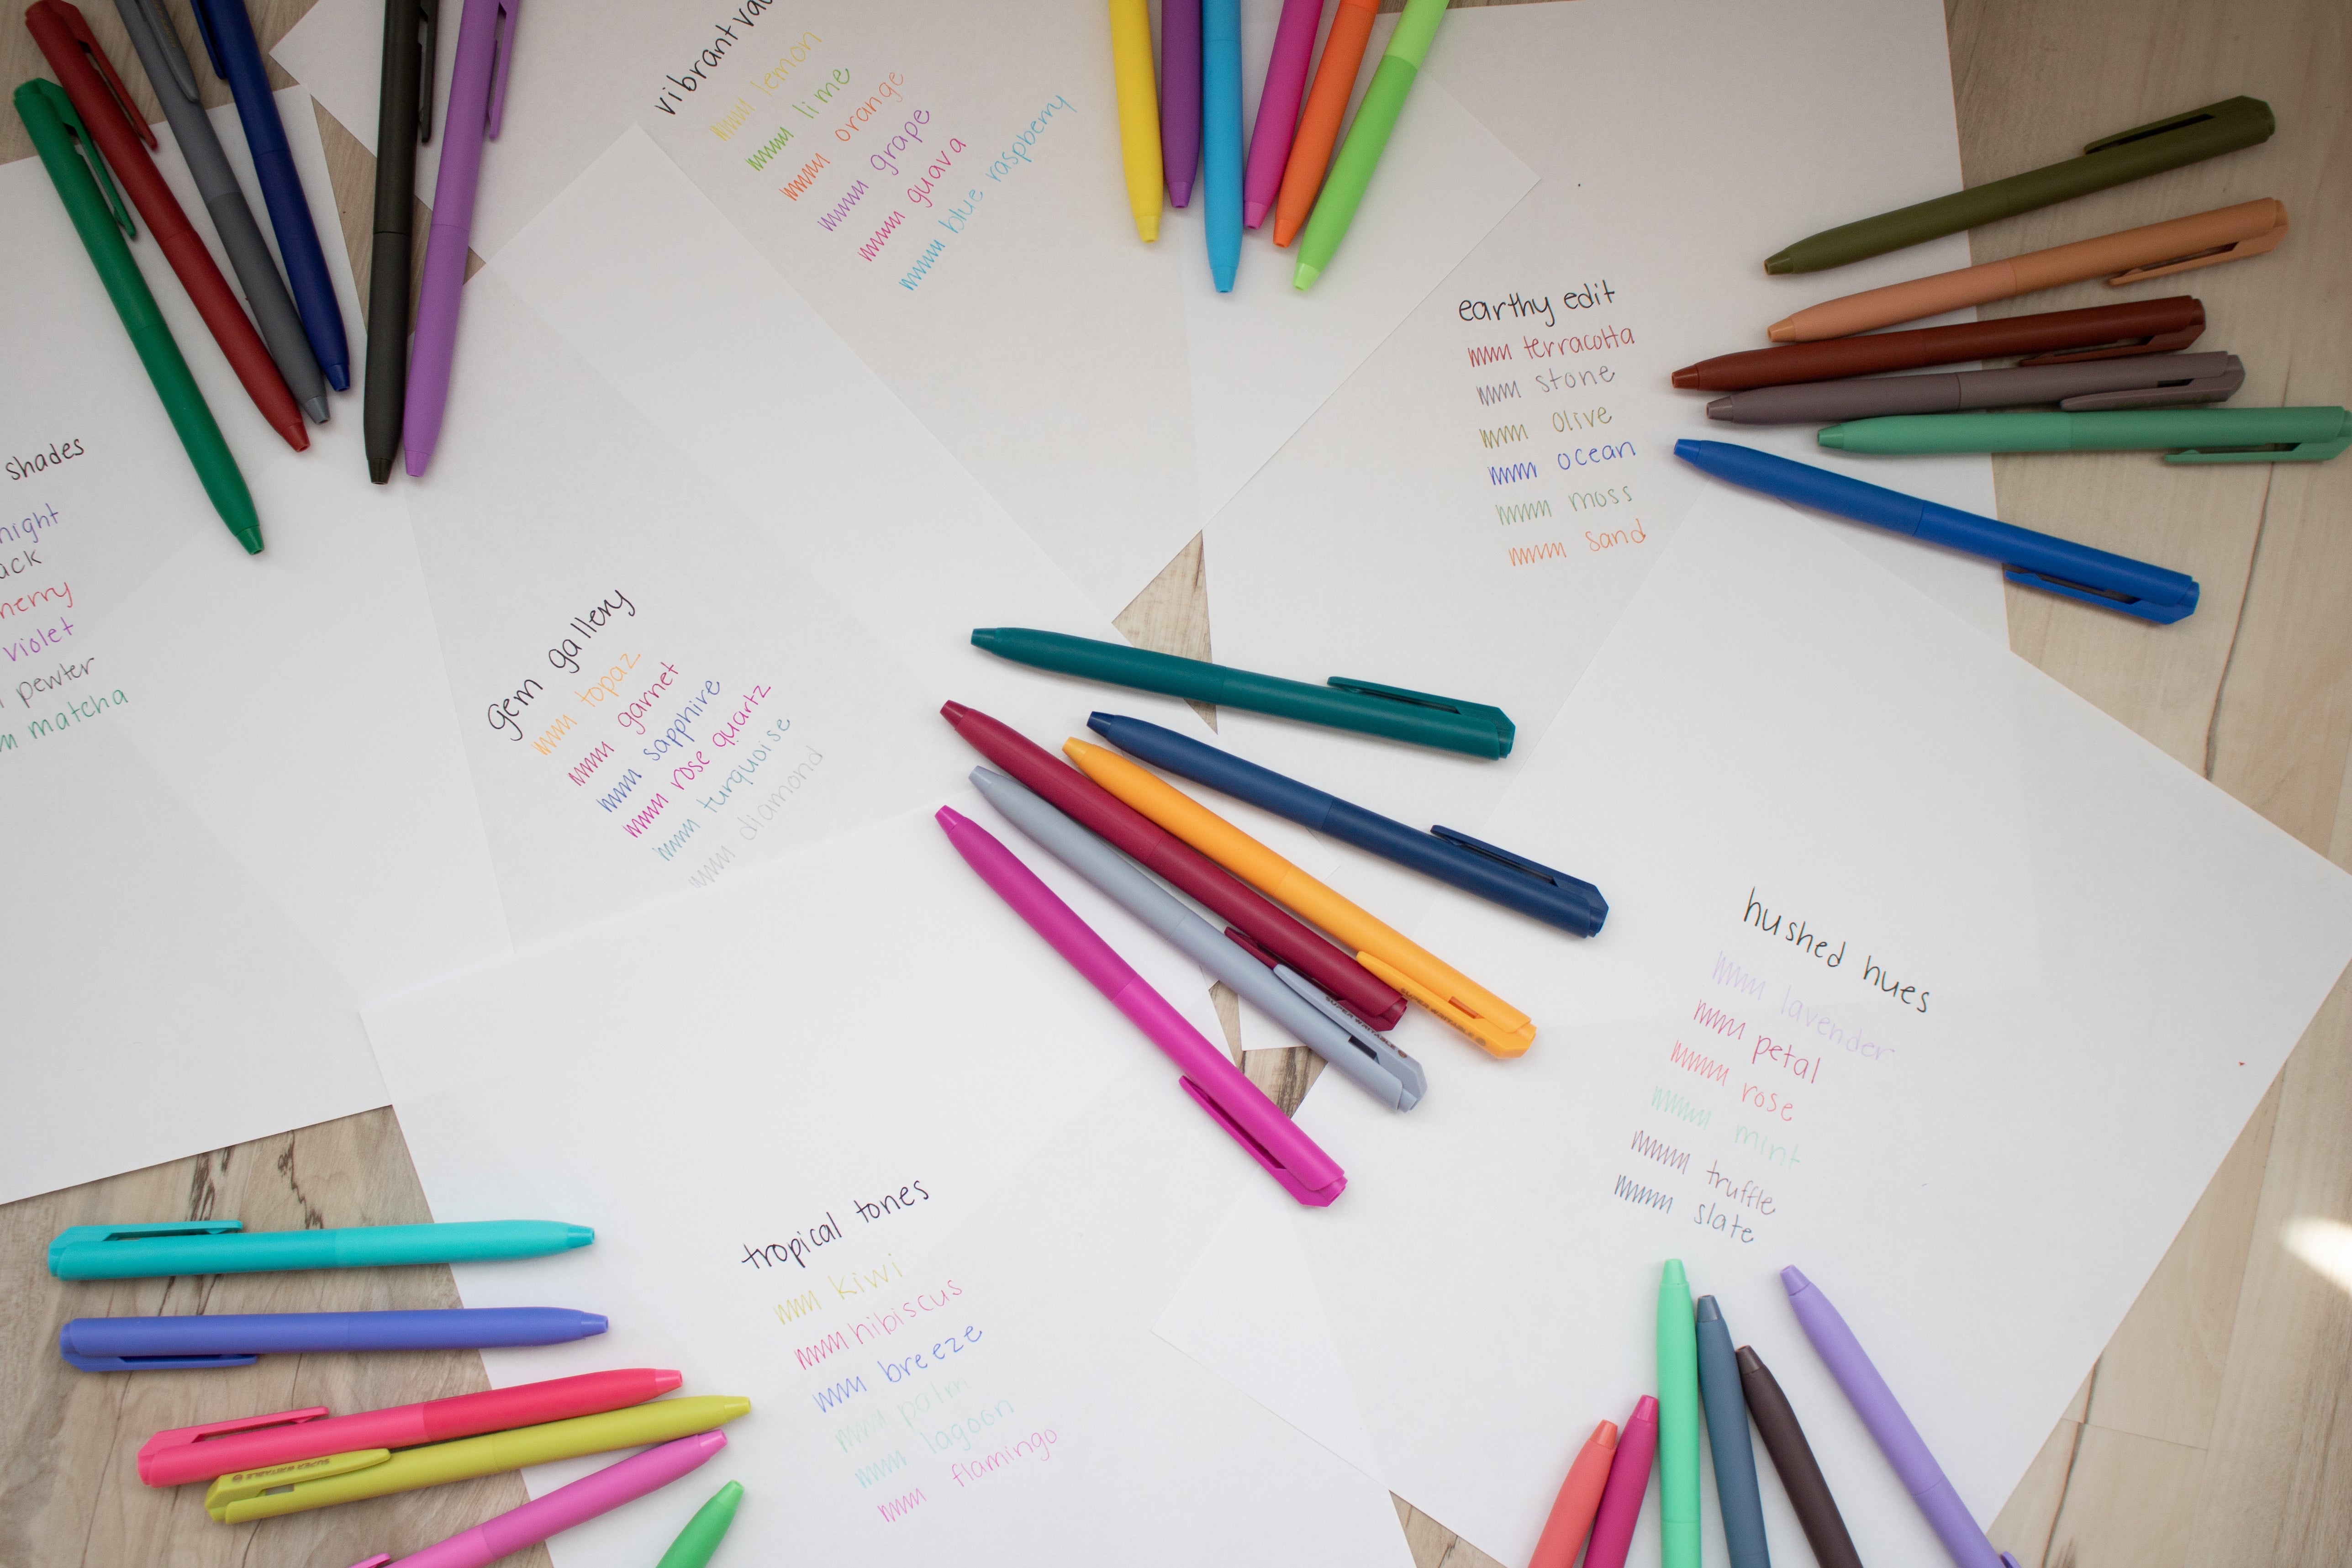 vibrant va
lemon
lime
orange
grape
guava
blue raspberry
earthy edit
terracotta
stone
olive
ocean
moss
sand
shades
night
ack
herry
violet
pewter
matcha
gem gallery
topaz
garnet
sapphire
rose quartz
turquoise
diamond
hushed hues
lavender
petal
rose
mint
truffle
slate
tropical tones
kiwi
hibiscus
breeze
palm
lagoon
flamingo
SUPER WRITABLE
SUPER WRITABLE
SUPER WRITABLE